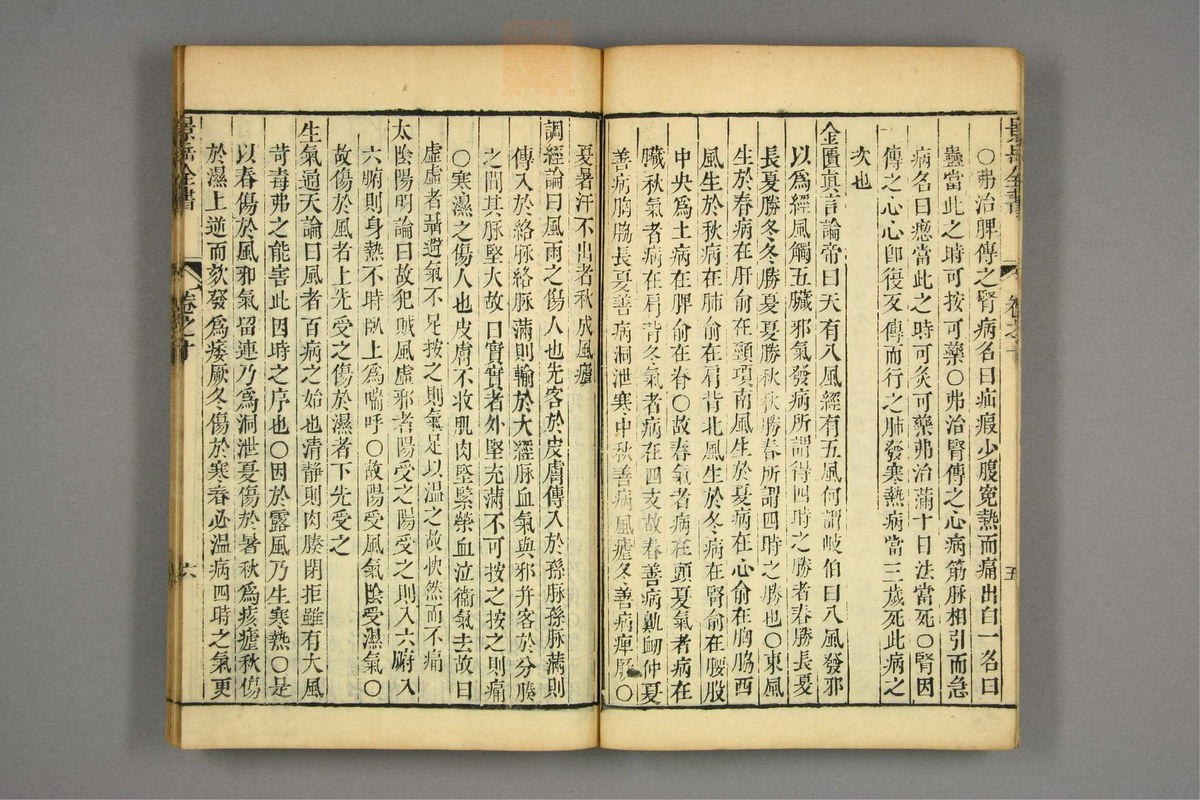 景岳全書 卷之十 五
〇弗治脾傳之腎病名曰疝瘕少腹冤熱而痛出白一名曰
蠱當此之時可按可藥〇弗治腎傳之心病筋脉相引而急
病名曰瘛當此之時可灸可藥弗治滿十日法當死〇腎因
傳之心心卽復反傳而行之肺發寒熱病當三歲死此病之
次也
金匱眞言論帝曰天有八風經有五風何謂岐伯曰八風發邪
以爲經風觸五臟邪氣發病所謂得四時之勝者春勝長夏
長夏勝冬冬勝夏夏勝秋秋勝春所謂四時之勝也〇東風
生於春病在肝俞在頸項南風生於夏病在心俞在胸脇西
風生於秋病在肺俞在肩背北風生於冬病在腎俞在腰股
中央爲土病在脾俞在脊〇故春氣者病在頭夏氣者病在
臟秋氣者病在肩背冬氣者病在四支故春善病鼽衂仲夏
善病胸脇長夏善病洞泄寒中秋善病風瘧冬善病痺厥〇
夏暑汗不出者秋成風瘧
調經論曰風雨之傷人也先客於皮膚傳入於孫脉孫脉滿則
傳入於絡脉絡脉滿則輸於大經脉血氣與邪并客於分腠
之間其脉堅大故曰實實者外堅充滿不可按之按之則痛
〇寒濕之傷人也皮膚不收肌肉堅緊榮血泣衞氣去故曰
虛虛者聶辟氣不足按之則氣足以温之故快然而不痛
太陰陽明論曰故犯賊風虛邪者陽受之陽受之則入六腑入
六腑則身熱不時臥上爲喘呼〇故陽受風氣陰受濕氣〇
故傷於風者上先受之傷於濕者下先受之
生氣通天論曰風者百病之始也清静則肉腠閉拒雖有大風
苛毒弗之能害此因時之序也〇因於露風乃生寒熱〇是
以春傷於風邪氣留連乃爲洞泄夏傷於暑秋爲痎瘧秋傷
於濕上逆而欬發爲痿厥冬傷於寒春必温病四時之氣更
景岳全書 卷之十 六